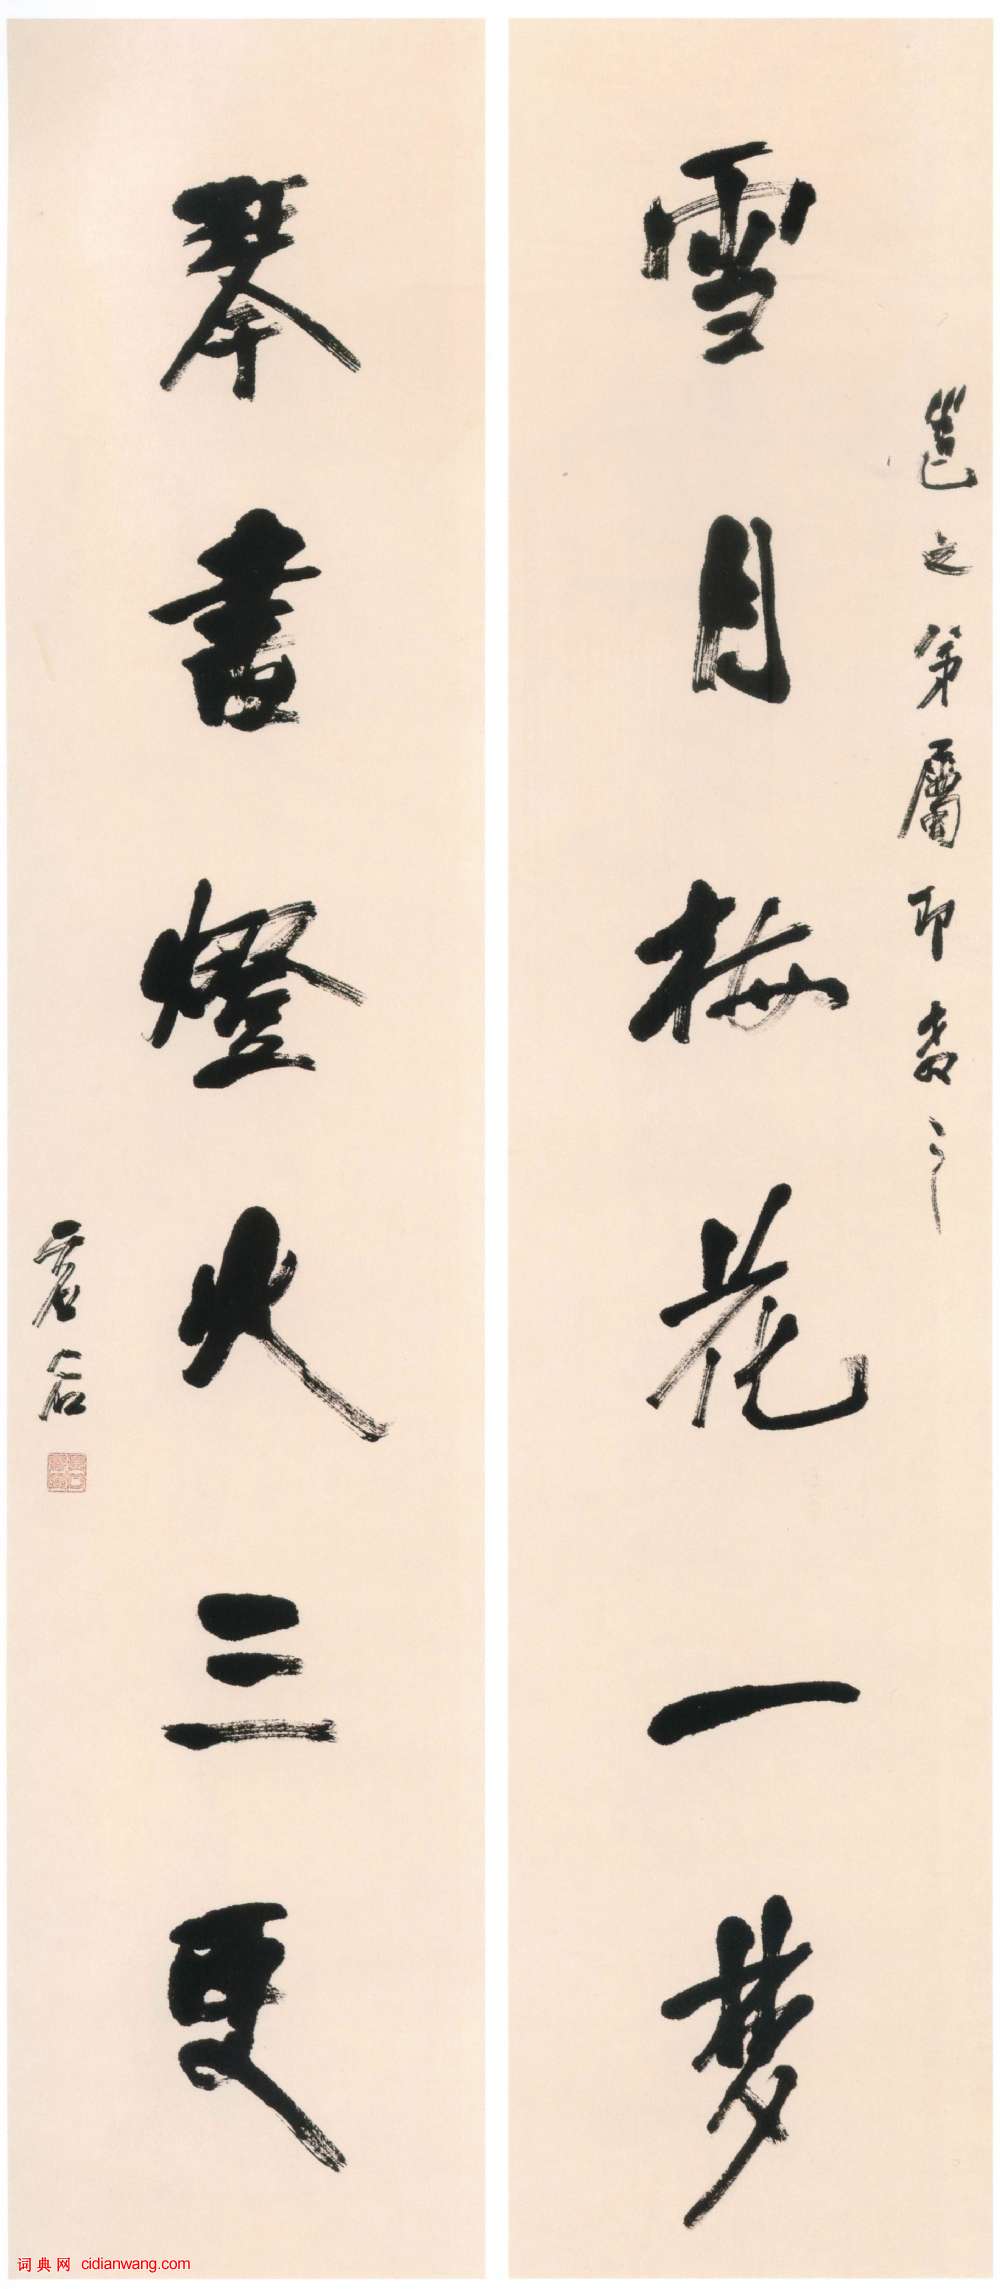 邕之弟屬即教之
雪月梅花一夢
琴書燈火三更
虛谷
词典网 cidianwang.com